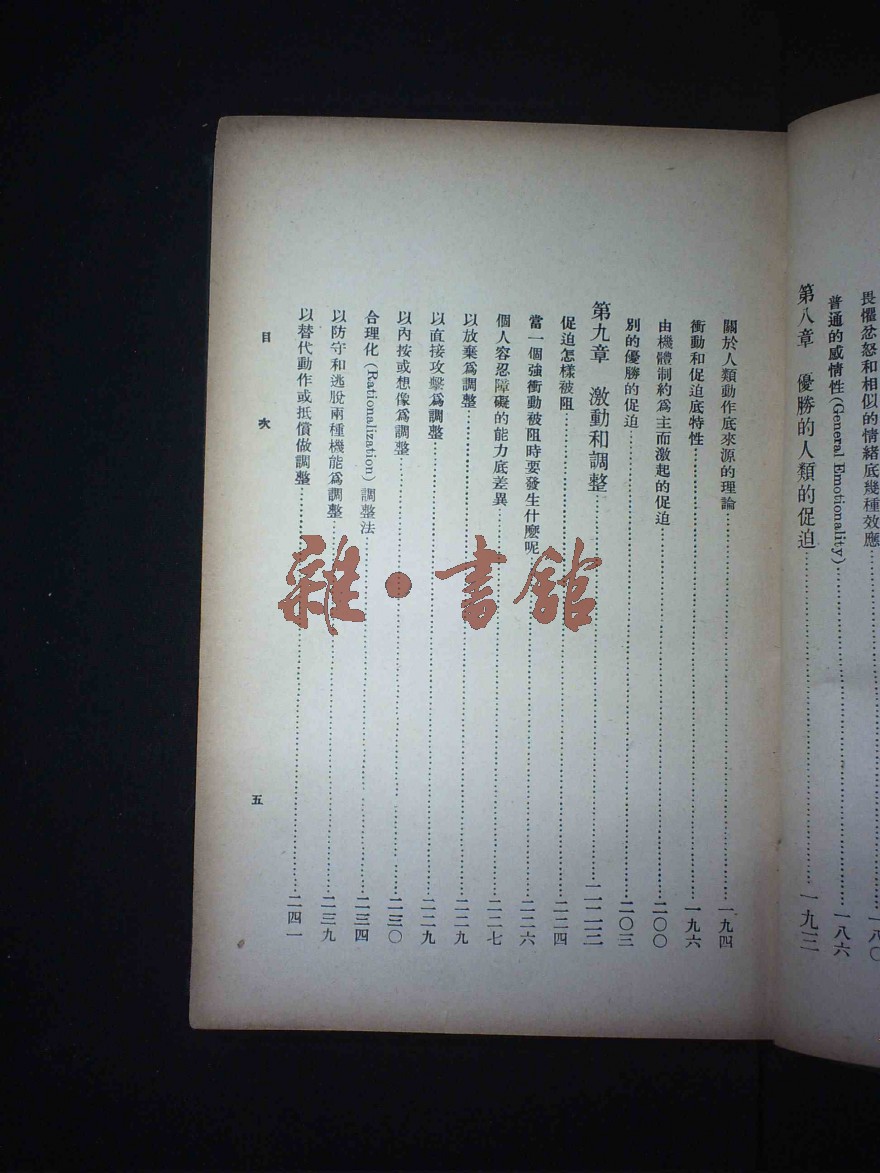 畏懼忿怒和相似的情緒底幾種效應……一八〇
普通的感情性(General Emotionality)……一八六
第八章 優勝的人類的促迫……一九三
關於人類動作底來源的理論……一九四
衝動和促迫底特性……一九六
由機體制約爲主而激起的促迫……二〇〇
別的優勝的促迫……二〇三
第九章 激動和調整
促迫怎樣被阻……二二四
當一個強衝動被阻時要發生什麼呢……二二六
個人容忍障礙的能力底差異……二二七
以放棄爲調整……二二九
以直接攻擊爲調整……二二九
以內按或想像爲調整……二三〇
合理化(Rationalization)調整法……二三四
以防守和逃脫兩種機能爲調整……二三九
以替代動作或抵償做調整……二四一
目次
五
雜·書館